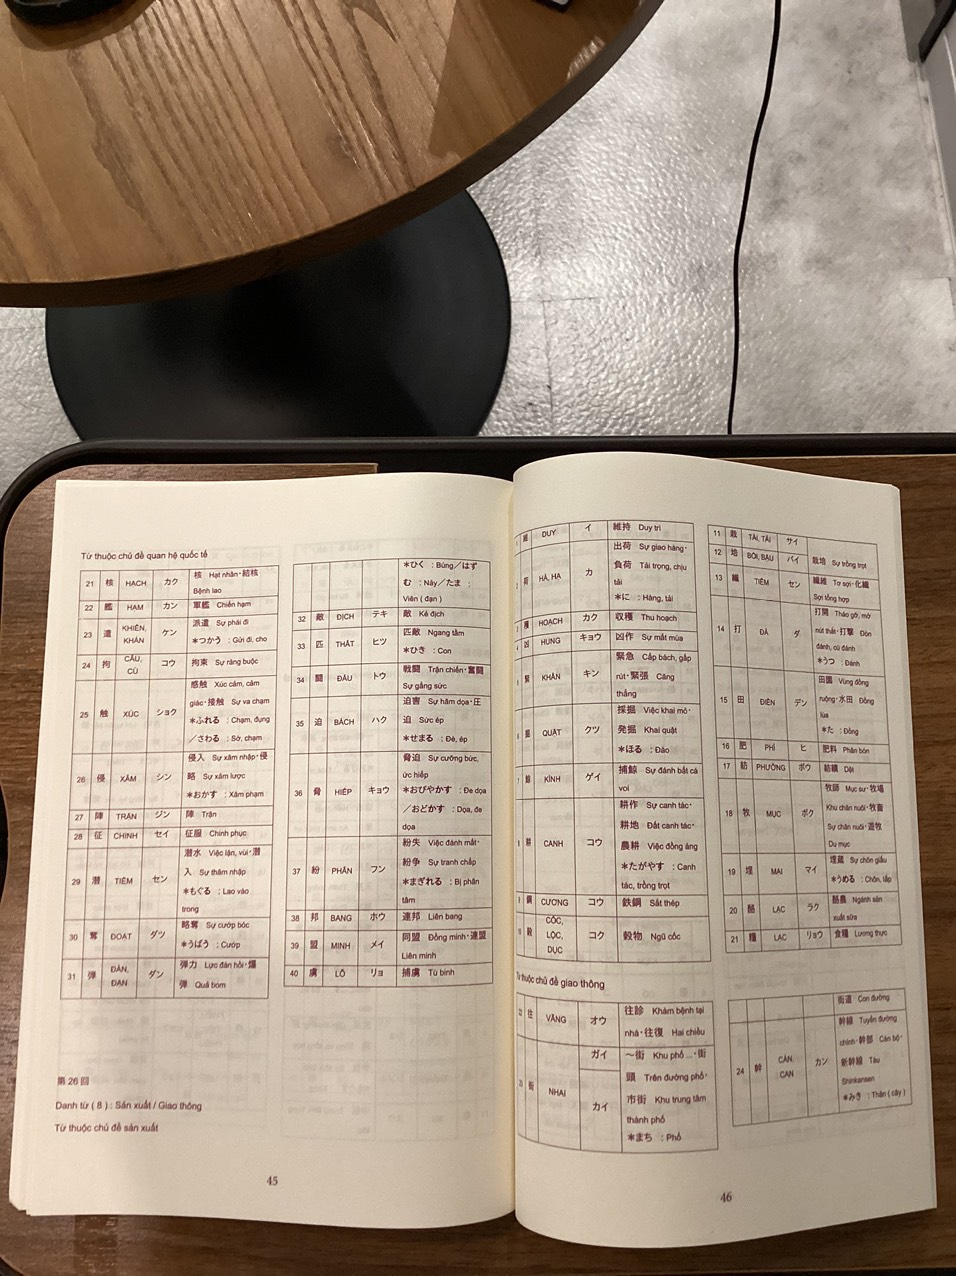 Từ thuộc chủ đề quan hệ quốc tế
21 核 HẠCH カク 核 Hạt nhân・結核
Bệnh lao
22 艦 HẠM カン 軍艦 Chiến hạm
23 遣 KHIỂN, KHÁN ケン 派遣 Sự phái đi
＊つかう : Gửi đi, cho
24 拘 CÂU, CÙ コウ 拘束 Sự ràng buộc
25 触 XÚC ショク 感触 Xúc cảm, cảm
giác・接触 Sự va chạm
＊ふれる : Chạm, đụng
／さわる : Sờ, chạm
26 侵 XÂM シン 侵入 Sự xâm nhập・侵
略 Sự xâm lược
＊おかす : Xâm phạm
27 陣 TRẬN ジン 陣 Trận
28 征 CHINH セイ 征服 Chinh phục
29 潜 TIỀM セン 潜水 Việc lặn, vùi・潜
入 Sự thâm nhập
＊もぐる : Lao vào
trong
30 奪 ĐOẠT ダツ 略奪 Sự cướp bóc
＊うばう : Cướp
31 弾 ĐÀN, ĐẠN ダン 弾力 Lực đàn hồi・爆
弾 Quả bom
第 26 回
Danh từ ( 8 ) : Sản xuất / Giao thông
Từ thuộc chủ đề sản xuất
＊ひく : Búng／はず
む : Nảy／たま :
Viên ( đạn )
32 敵 ĐỊCH テキ 敵 Kẻ địch
33 匹 THẤT ヒツ 匹敵 Ngang tầm
＊ひき : Con
34 闘 ĐẤU トウ 戦闘 Trận chiến・奮闘
Sự gắng sức
35 迫 BÁCH ハク 迫害 Sự hăm dọa・圧
迫 Sức ép
＊せまる : Đè, ép
36 脅 HIẾP キョウ 脅迫 Sự cưỡng bức,
ức hiếp
＊おびやかす : Đe dọa
／おどかす : Dọa, đe
dọa
37 紛 PHÂN フン 紛失 Việc đánh mất・
紛争 Sự tranh chấp
＊まぎれる : Bị phân
tâm
38 邦 BANG ホウ 連邦 Liên bang
39 盟 MINH メイ 同盟 Đồng minh・連盟
Liên minh
40 虜 LỖ リョ 捕虜 Tù binh
45
維 DUY イ 維持 Duy trì
荷 HÀ, HẠ カ 出荷 Sự giao hàng・
負荷 Tải trọng, chịu
tải
＊に : Hàng, tải
穫 HOẠCH カク 収穫 Thu hoạch
凶 HUNG キョウ 凶作 Sự mất mùa
緊 KHẨN キン 緊急 Cấp bách, gấp
rút・緊張 Căng
thẳng
掘 QUẬT クツ 採掘 Việc khai mỏ・
発掘 Khai quật
＊ほる : Đào
鯨 KÌNH ゲイ 捕鯨 Sự đánh bắt cá
voi
耕 CANH コウ 耕作 Sự canh tác・
耕地 Đất canh tác・
農耕 Việc đồng áng
＊たがやす : Canh
tác, trồng trọt
鋼 CƯƠNG コウ 鉄鋼 Sắt thép
穀 CỐC, LỘC, DỤC コク 穀物 Ngũ cốc
Từ thuộc chủ đề giao thông
22 往 VÃNG オウ 往診 Khám bệnh tại
nhà・往復 Hai chiều
23 街 NHAI ガイ カイ ～街 Khu phố ...・街
頭 Trên đường phố・
市街 Khu trung tâm
thành phố
＊まち : Phố
11 栽 TÀI, TẢI サイ
12 培 BỒI, BẬU バイ 栽培 Sự trồng trọt
13 繊 TIÊM セン 繊維 Tơ sợi・化繊
Sợi tổng hợp
14 打 ĐẢ ダ 打開 Tháo gỡ, mở
nút thắt・打撃 Đòn
đánh, cú đánh
＊うつ : Đánh
15 田 ĐIỀN デン 田園 Vùng đồng
ruộng・水田 Đồng
lúa
＊た : Đồng
16 肥 PHÌ ヒ 肥料 Phân bón
17 紡 PHƯỞNG ボウ 紡績 Dệt
18 牧 MỤC ボク 牧師 Mục sư・牧場
Khu chăn nuôi・牧畜
Sự chăn nuôi・遊牧
Du mục
19 埋 MAI マイ 埋蔵 Sự chôn giấu
＊うめる : Chôn, lấp
20 酪 LẠC ラク 酪農 Ngành sản
xuất sữa
21 糧 LẠC リョウ 食糧 Lương thực
街道 Con đường
24 幹 CÁN, CAN カン 幹線 Tuyến đường
chính・幹部 Cán bộ・
新幹線 Tàu
Shinkansen
＊みき : Thân ( cây )
46